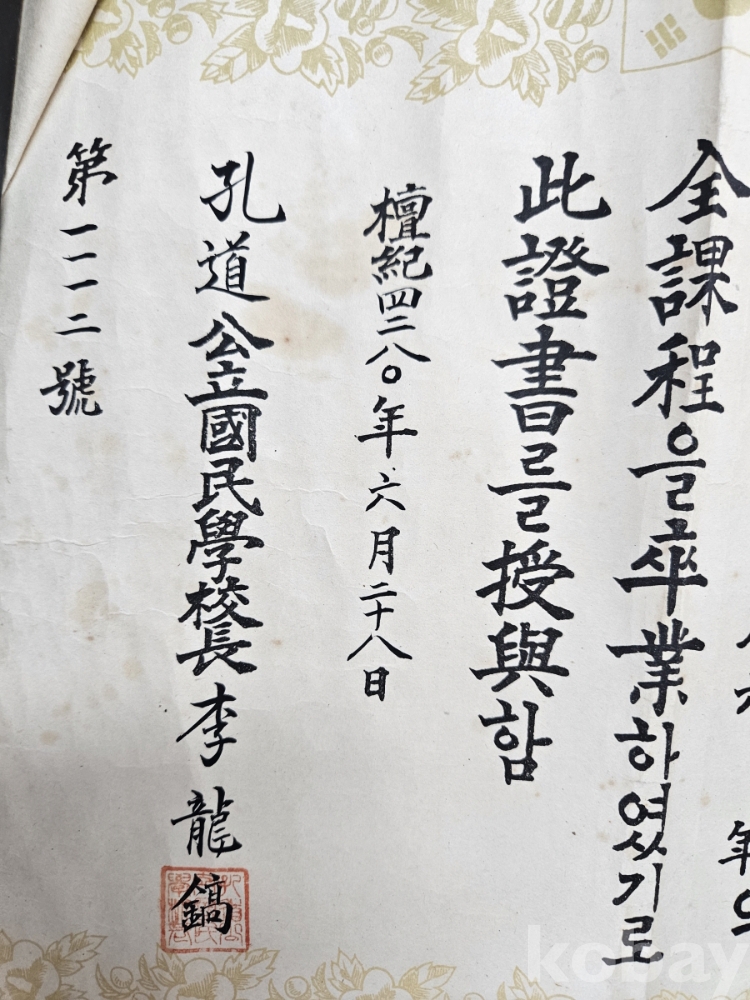 全課程을卒業하였기로
此證書를授與함
檀紀四二八〇年六月二十八日
孔道公立國民學校長 李龍鎬
第一一一二號
kobay